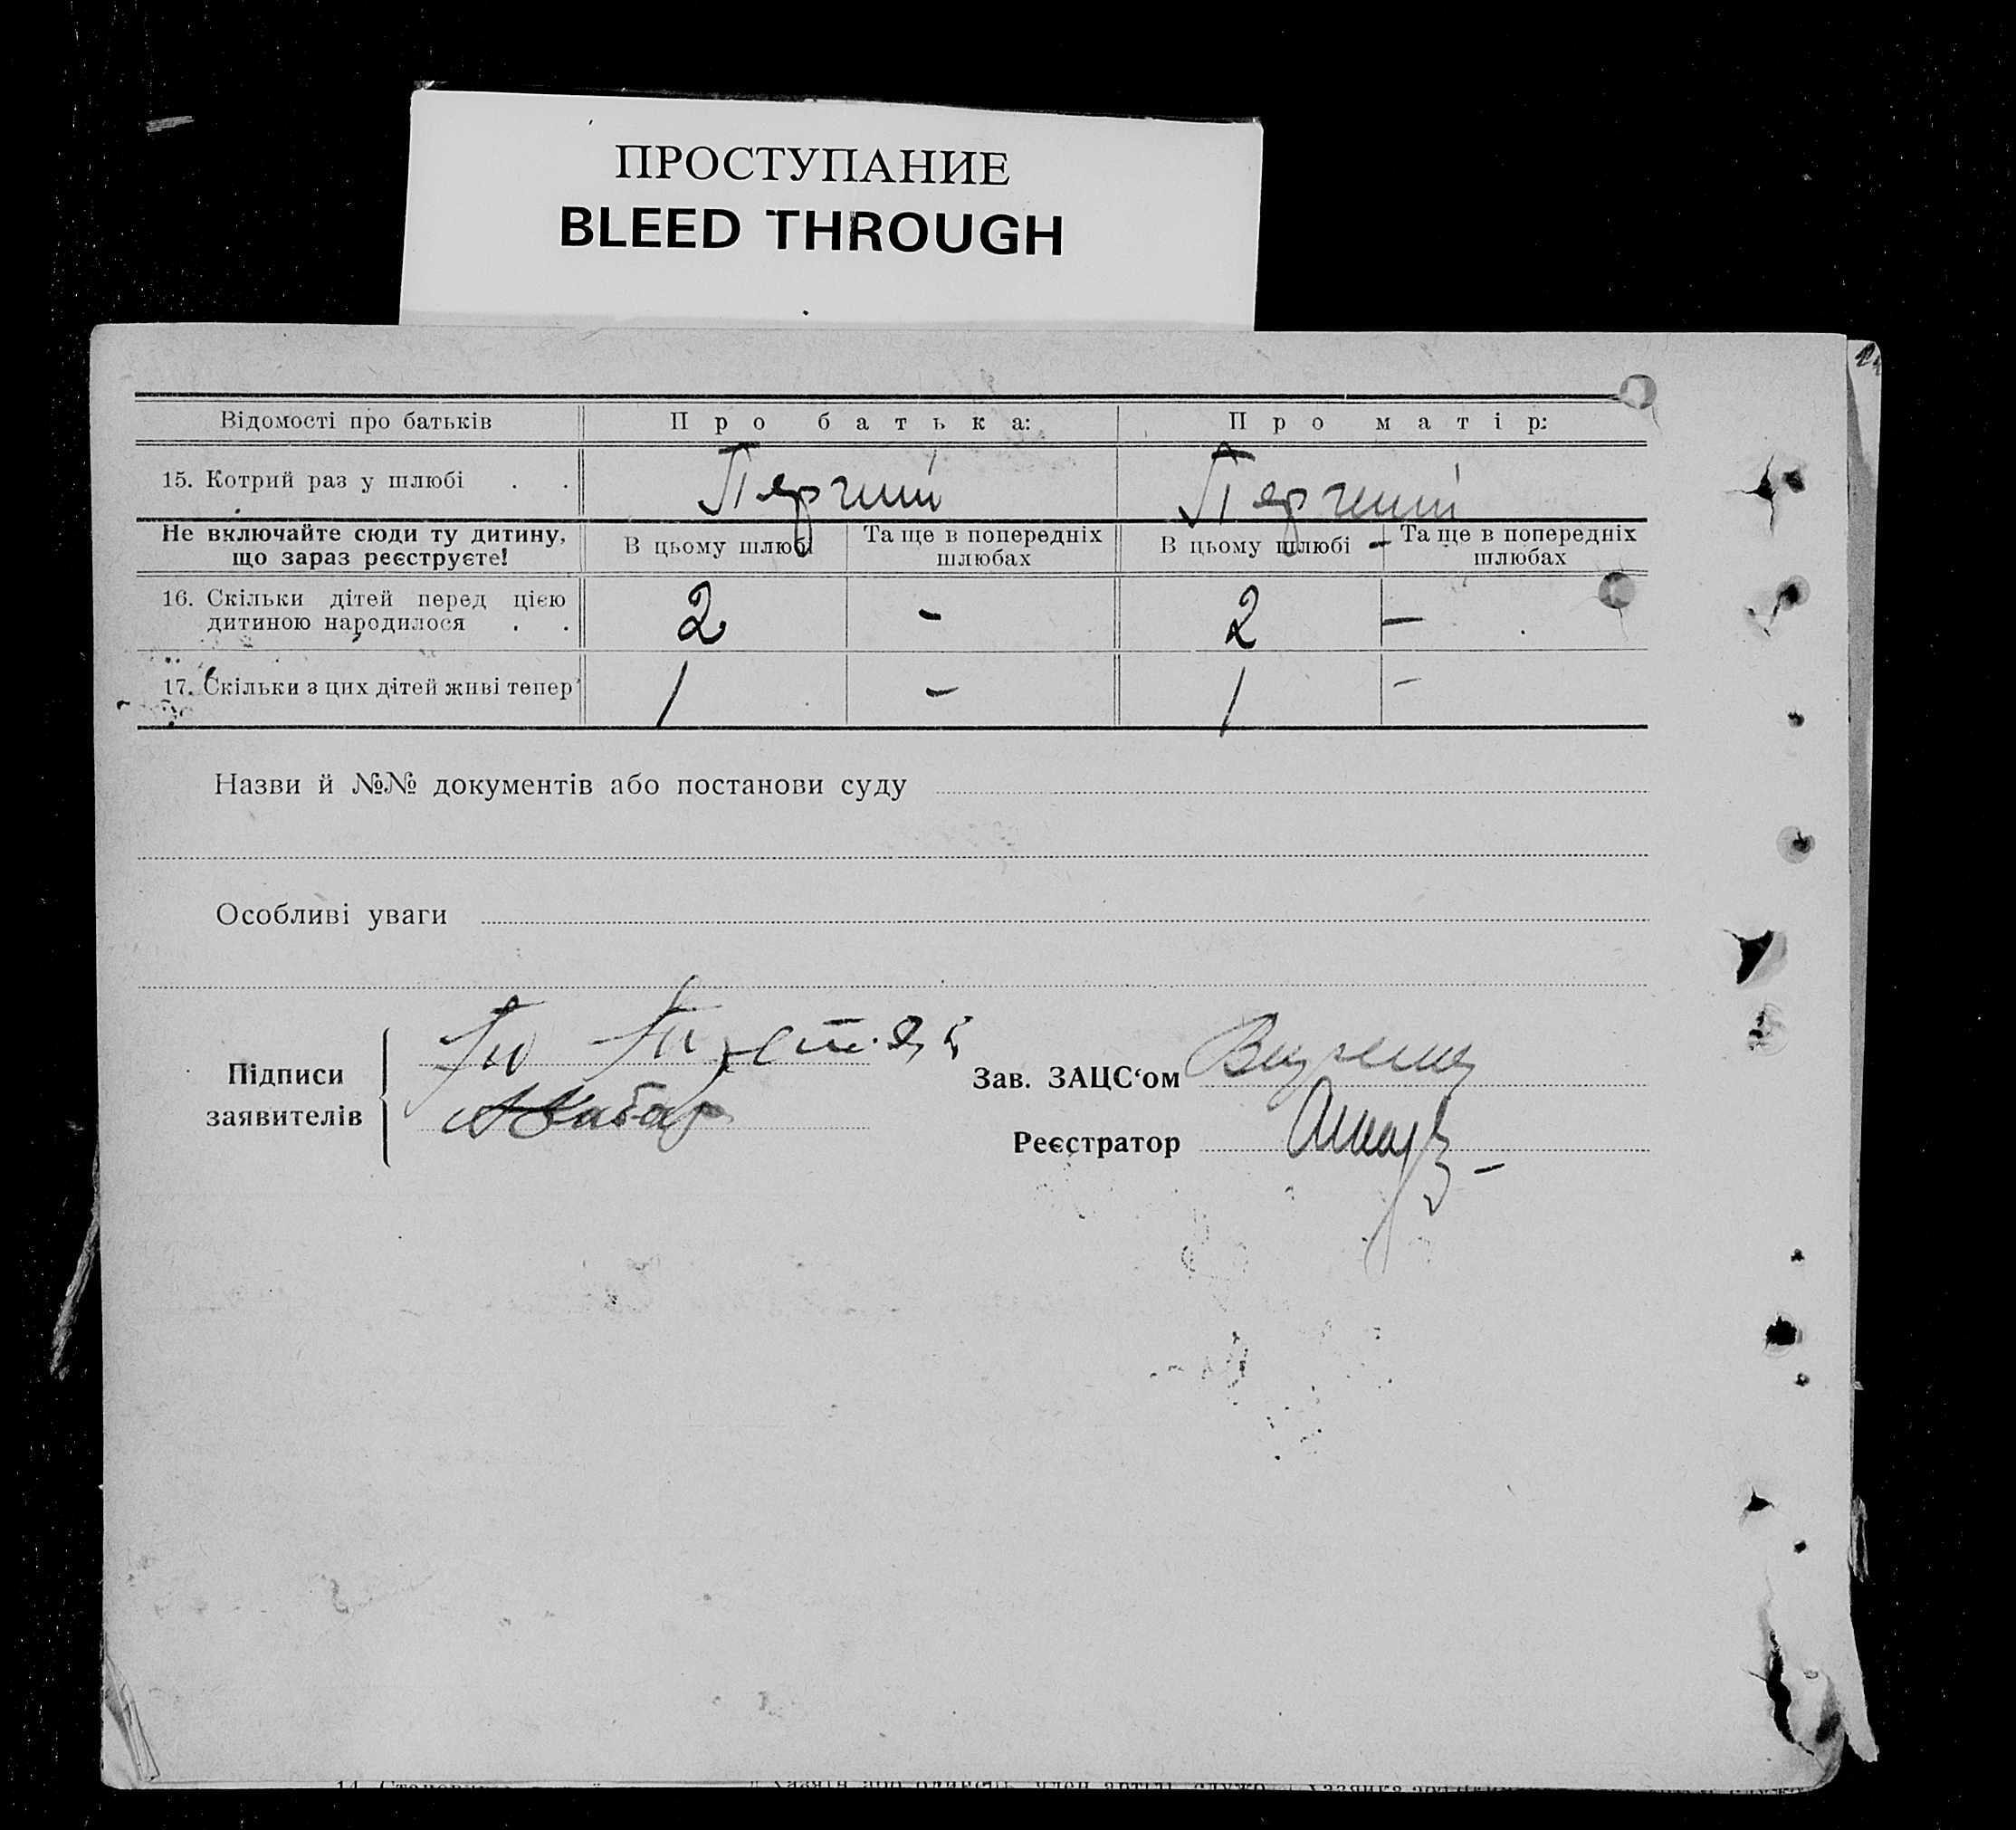 ПРОСТУПАНИЕ
BLEED THROUGH
Відомості про батьків Про батька: Про матір:
15. Котрий раз у шлюбі . . Перший Перший
Не включайте сюди ту дитину, що зараз реєструєте! В цьому шлюбі Та ще в попередніх шлюбах В цьому шлюбі - Та ще в попередніх шлюбах
16. Скільки дітей перед цією дитиною народилося . . 2 - 2 -
17. Скільки з цих дітей живі тепер 1 - 1 -
Назви й №№ документів або постанови суду
Особливі уваги
Підписи заявителів
Зав. ЗАЦС‘ом
Реєстратор